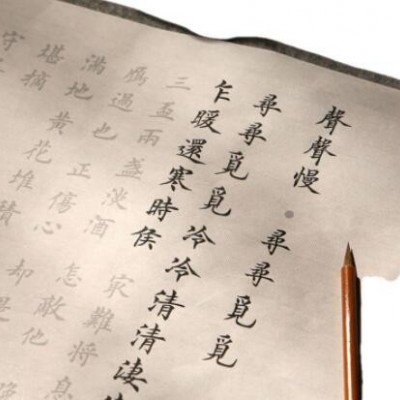 聲聲慢・尋尋覓覓
尋尋覓覓冷冷清清淒
乍暖還寒時候難將息
三盃兩盞淡酒怎敵他晚
鴈過也正傷心却是
滿地黃花堆積
堪摘
守